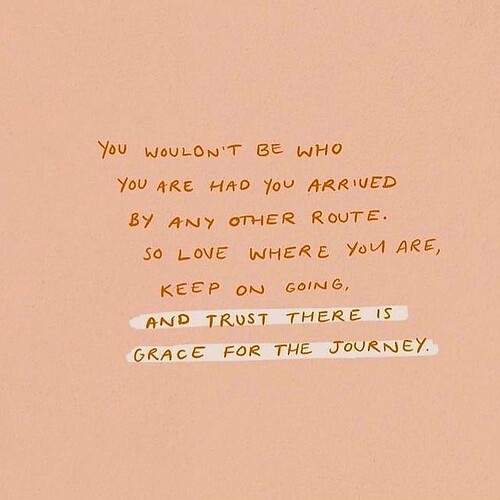 YOU WOULDN'T BE WHO
YOU ARE HAD YOU ARRIVED
BY ANY OTHER ROUTE.
SO LOVE WHERE YOU ARE,
KEEP ON GOING,
AND TRUST THERE IS
GRACE FOR THE JOURNEY.